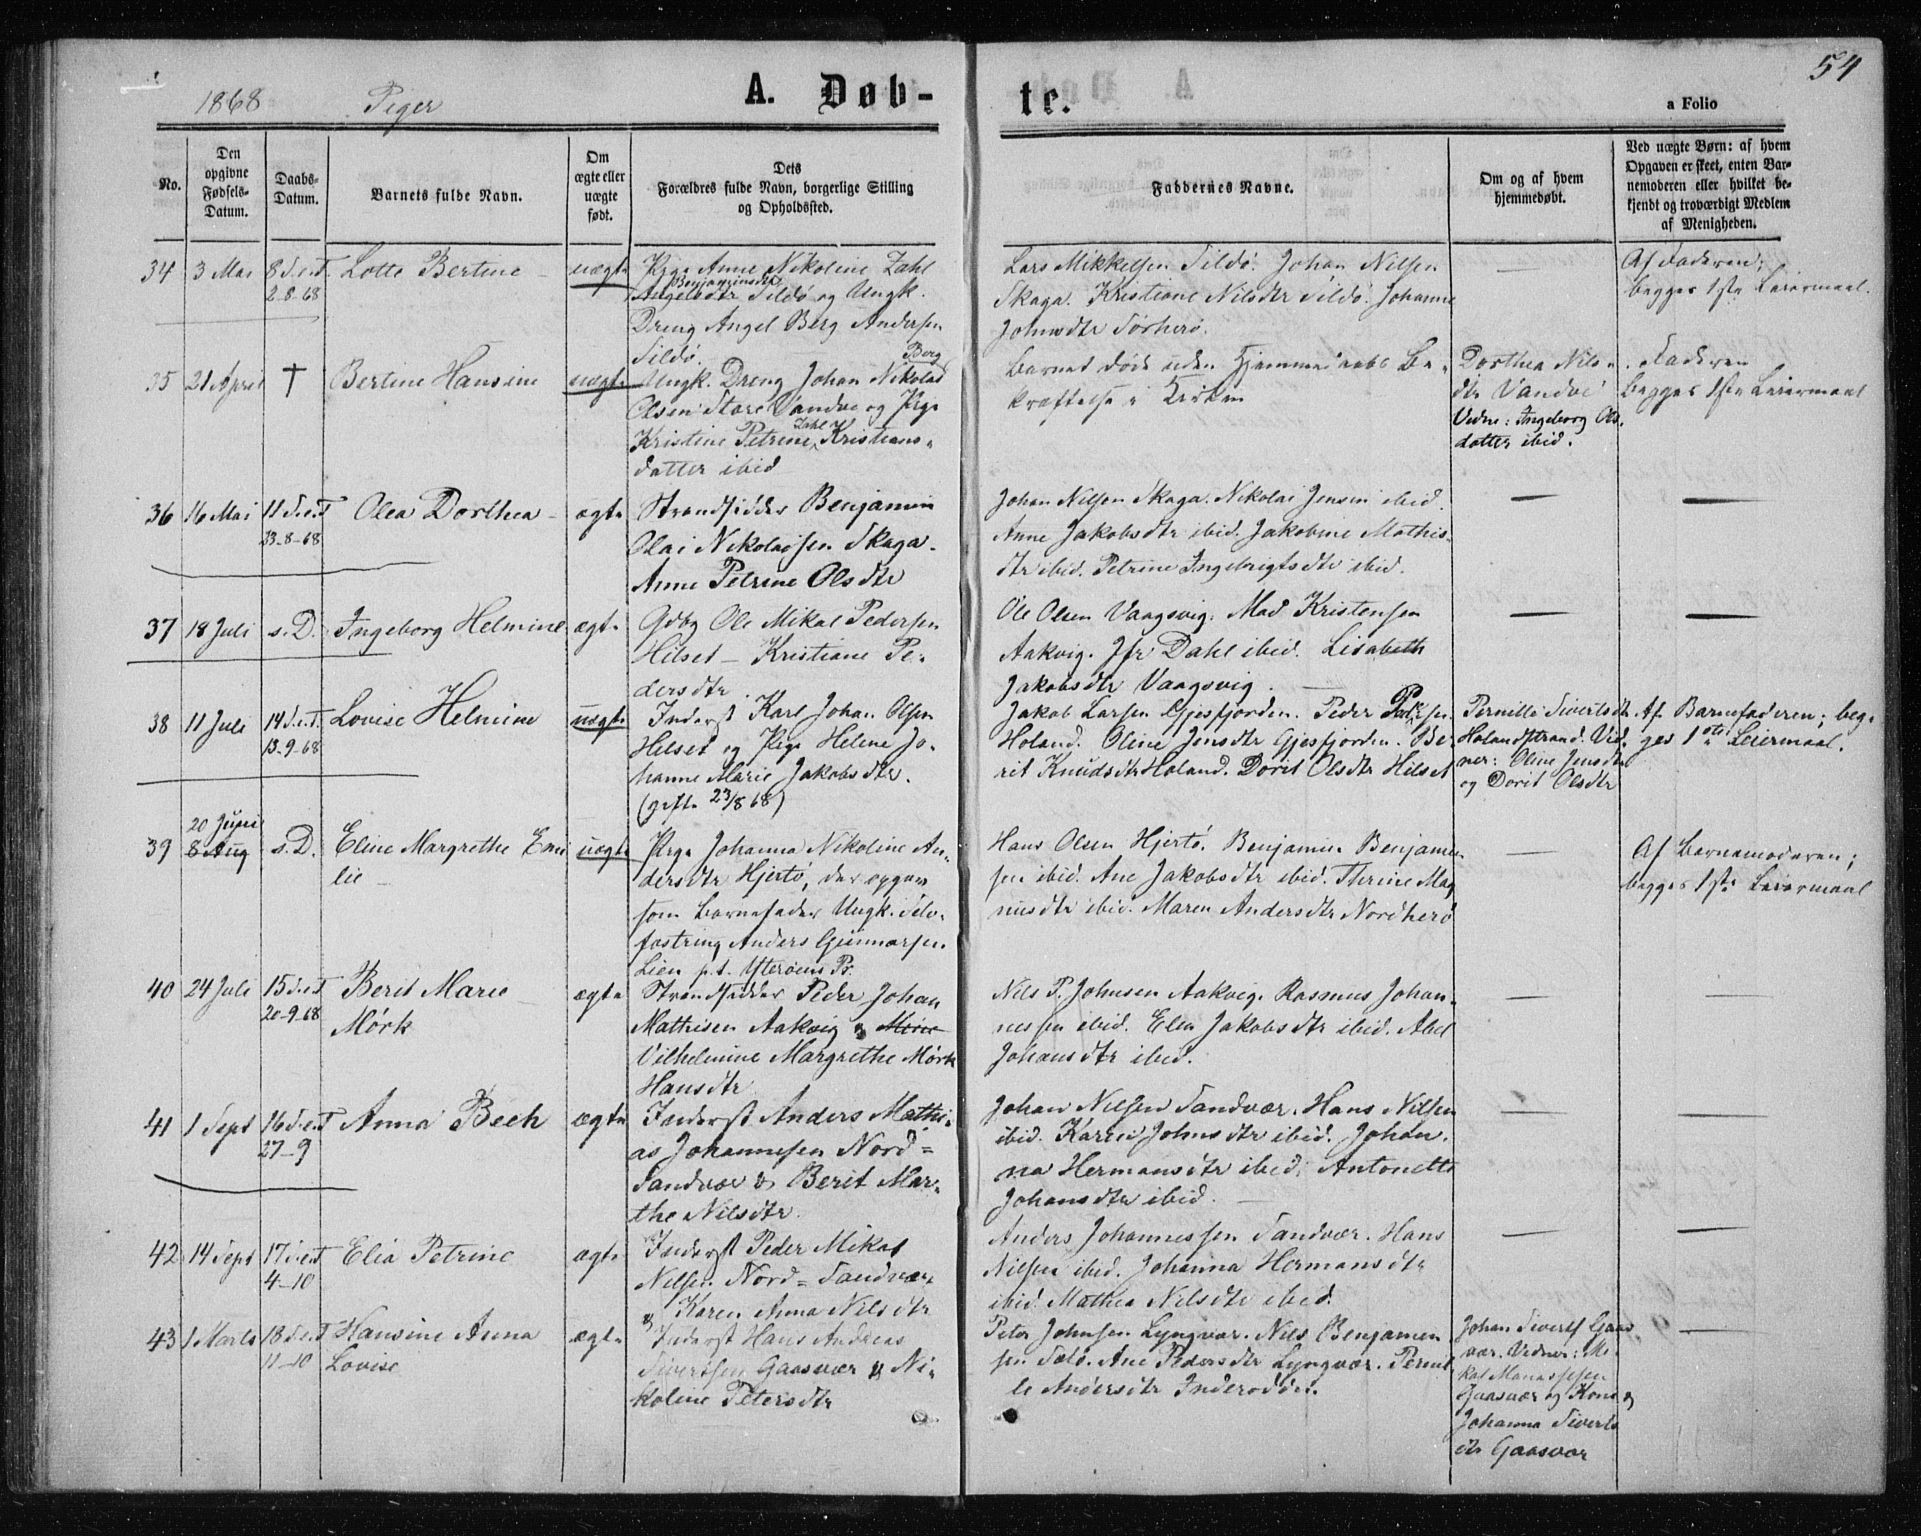 54
1868 Piger
A. Døb-
te.
a Folio
No.
Den
opgivne
Fødsels-
Datum.
Daabs-
Datum.
Barnets fulde Navn.
Om
ægte eller
uægte
født.
Dets
Forældres fulde Navn, borgerlige Stilling
og Opholdssted.
Faddernes Navne.
Om og af hvem
hjemmedøbt.
Ved uægte Børn: af hvem
Opgaven er skeet, enten Bar-
nemoderen eller hvilket be-
kjendt og troværdigt Medlem
af Menigheden.
34
3 Mai
8 S.e.T.
2-8-68
Lotte Bertine
uægte
Pige Anne Nikoline Zahl
Benjaminsdtr
Sildø og Ungk.
Dreng Angel Berg Andersen
Sildø.
Lars Mikkelsen Sildø. Johan Nilsen
Skaga. Kristiane Nilsdtr Sildø. Johanne
Johnsdtr Sørherø.
Af Faderen;
begges 1ste Leiermaal.
35
21 April
†
Bertine Hansine
uægte
Berg
Ungk. Dreng Johan Nikolai
Olsen Store Vandve og Pige
Kristine Petrine Zahl Kristians-
datter ibid
Barnet døde uden Hjemmedaabs Be-
kræftelse i Kirken
Dorthea Nils-
dtr Vandve
Vidne: Ingeborg Ols-
datter ibid.
Faderen
begges 1ste Leiermaal
36
16 Mai
11 S.e.T
23-8-68
Olea Dorthea
ægte
Strandsidder Benjamin
Olai Nikolaisen Skaga.
Anne Petrine Olsdtr
Johan Nilsen Skaga. Nikolai Jensen ibid.
Anne Jakobsdtr ibid. Jakobine Mathis-
dtr ibid. Petrine Ingebrigtsdtr ibid.
37
18 Juli
s. D.
Ingeborg Helmine
ægte
Gdbg Ole Mikal Pedersen
Hilset – Kristiane Pe-
dersdtr.
Ole Olsen Vaagsvig. Mad Kristensen
Aakvig. Jfr Dahl ibid. Lisabeth
Jakobsdtr Vaagsvig.
38
11 Juli
14 S.e.T.
13-9-68
Lovise Helmine
uægte
Inderst Karl Johan Olsen
Hilset og Pige Helene Jo-
hanne Marie Jakobsdtr.
(gift 23/8 68)
Jakob Larsen Gjesfjorden. Peder
Holand. Oline Jensdtr Gjesfjorden. Be-
rit Knudsdtr Holand. Dorit Olsdtr Hilset
Pernille Sivertsdtr
Holandstrand. Vid-
ner: Oline Jensdtr
og Dorit Olsdtr
Af Barnefaderen; beg-
ges 1ste Leiermaal.
39
20 Juni
8 Aug
s. D.
Eline Margrethe Emi
lie
uægte
Pige Johanna Nikoline An-
dersdtr Hjertø, der opgav
som Barnefader Ungk. Selv-
fostring Anders Gunnarsen
Lien p.t. Ytterøens Pr.
Hans Olsen Hjertø. Benjamin Benjamin-
sen ibid. Ane Jakobsdtr ibid. Thrine Mag
nusdtr ibid. Maren Andersdtr Nordherø
Af Barnemoderen;
begges 1ste Leiermaal
40
24 Juli
15 S.e.T
20-9-68
Berit Marie
Mørk
ægte
Strandsidder Peder Johan
Mathisen Aakvig &
Vilhelmine Margrethe Mørk
Hansdtr
Nils P. Johnsen Aakvig. Rasmus Johan-
nessen ibid. Elen Jakobsdtr ibid. Abel
Johansdtr ibid.
41
1 Sept
16 S.e.T
27-9
Anna Bech
ægte
Inderst Anders Mathi-
as Johannesen Nord=
Sandvær & Berit Mar-
the Nilsdtr.
Johan Nilsen Sandvær. Hans Nilsen
ibid. Karen Johnsdtr ibid. Johan-
na Hermansdtr ibid. Antonette
Johansdtr ibid.
42
14 Sept
17 S.e.T
4-10
Elia Petrine
ægte
Inderst Peder Mikal
Nilsen Nord=Sandvær
& Karen Anna Nilsdtr
Anders Johannessen Sandvær. Hans
Nilsen ibid. Johanna Hermansdtr
ibid. Mathea Nilsdtr ibid.
43
1 Marts
18 S.e.T
11-10
Hansine Anna
Lovise
ægte
Inderst Hans Andreas
Sivertsen Gaasvær & Ni-
koline Petersdtr
Peter Johnsen Lyngvær. Nils Benjamin
sen Sølø. Ane Pedersdtr Lyngvær. Pernil
le Andersdtr Inderodden.
Johan Siverts Gaas
vær. Vidner: Mi-
kal Manassesen
Gaasvær og Kone &
Johanna Siverts
dtr Gaasvær